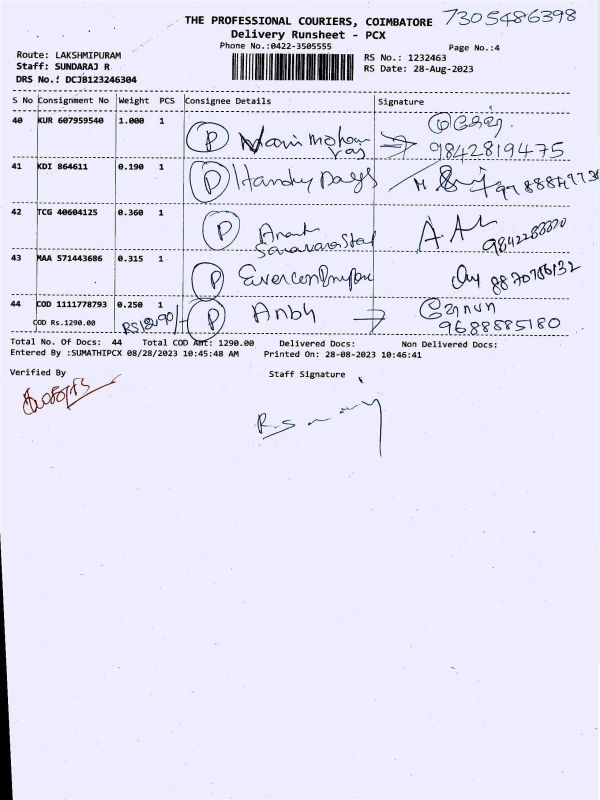 THE PROFESSIONAL COURIERS, COIMBATORE 7305486398
Delivery Runsheet - PCX
Phone No.:0422-3505555 Page No.:4
Route: LAKSHMIPURAM RS No.: 1232463
Staff: SUNDARAJ R RS Date: 28-Aug-2023
DRS No.: DCJB123246304
S No Consignment No Weight PCS Consignee Details Signature
40 KUR 607959540 1.000 1
P Manimohan
9842819475
41 KDI 864611 0.190 1
P
42 TCG 40604125 0.360 1
P 9842288820
43 MAA 571443686 0.315 1
P 8870786132
44 COD 1111778793 0.250 1
COD Rs.1290.00 P Anbh
9688885180
Total No. Of Docs: 44 Total COD Amt: 1290.00 Delivered Docs: Non Delivered Docs:
Entered By :SUMATHIPCX 08/28/2023 10:45:48 AM Printed On: 28-08-2023 10:46:41
Verified By Staff Signature